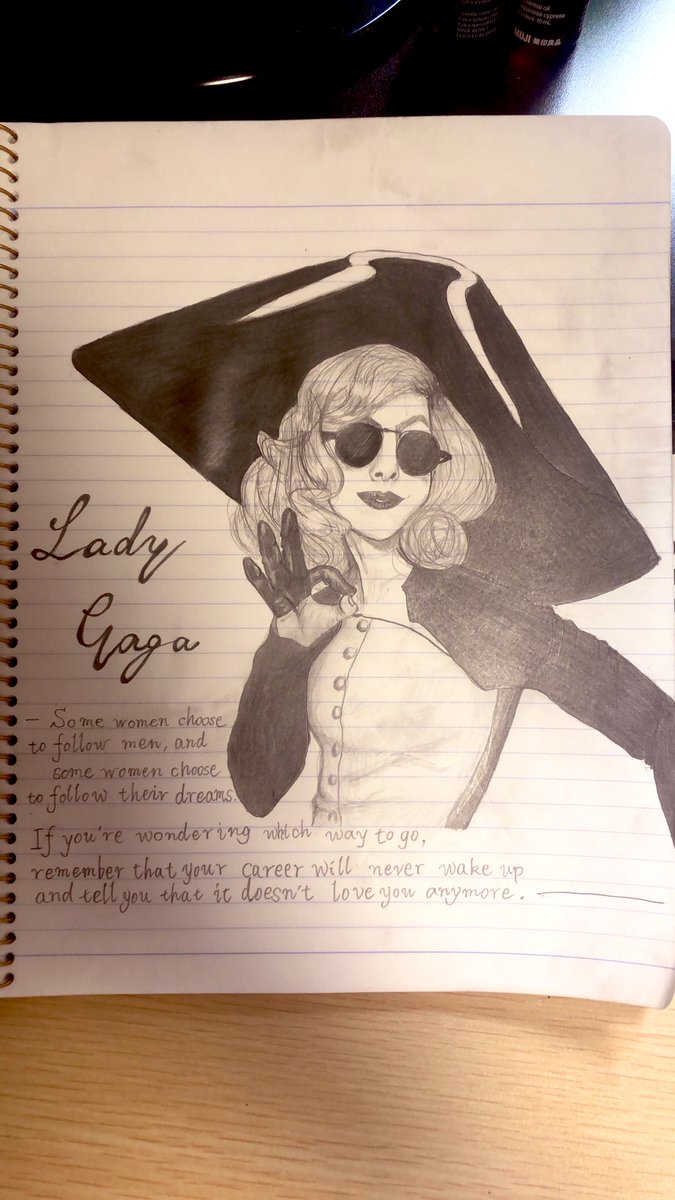 ssential oil
apanese cypress
ontent. 10 mL
MUJI 無印良品
Lady
Gaga
— Some women choose
to follow men, and
some women choose
to follow their dreams.
If you're wondering which way to go,
remember that your career will never wake up
and tell you that it doesn't love you anymore.